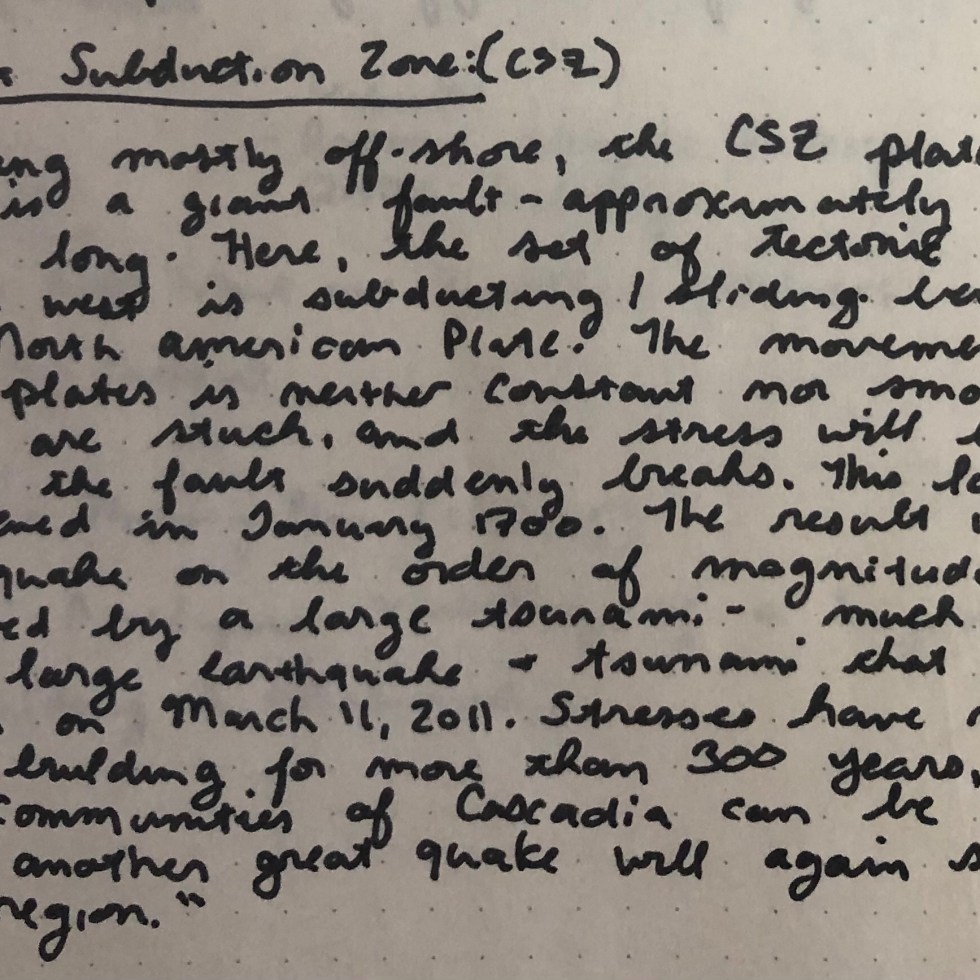 Subduction Zone:(CSZ)
ing mostly off-shore, the CSZ plat
is a giant fault - approximately
long. Here, the set of tectonic
west is subducting / sliding be
North american Plate. The moveme
plates is neither constant nor smo
are stuck, and the stress will
the fault suddenly breaks. This
ened in January 1700. The result
quake on the order of magnitud
ed by a large tsunami - much
large earthquake + tsunami that
on March 11, 2011. Stresses have
building for more than 300 years,
communities of Cascadia can be
another great quake will again s
region."